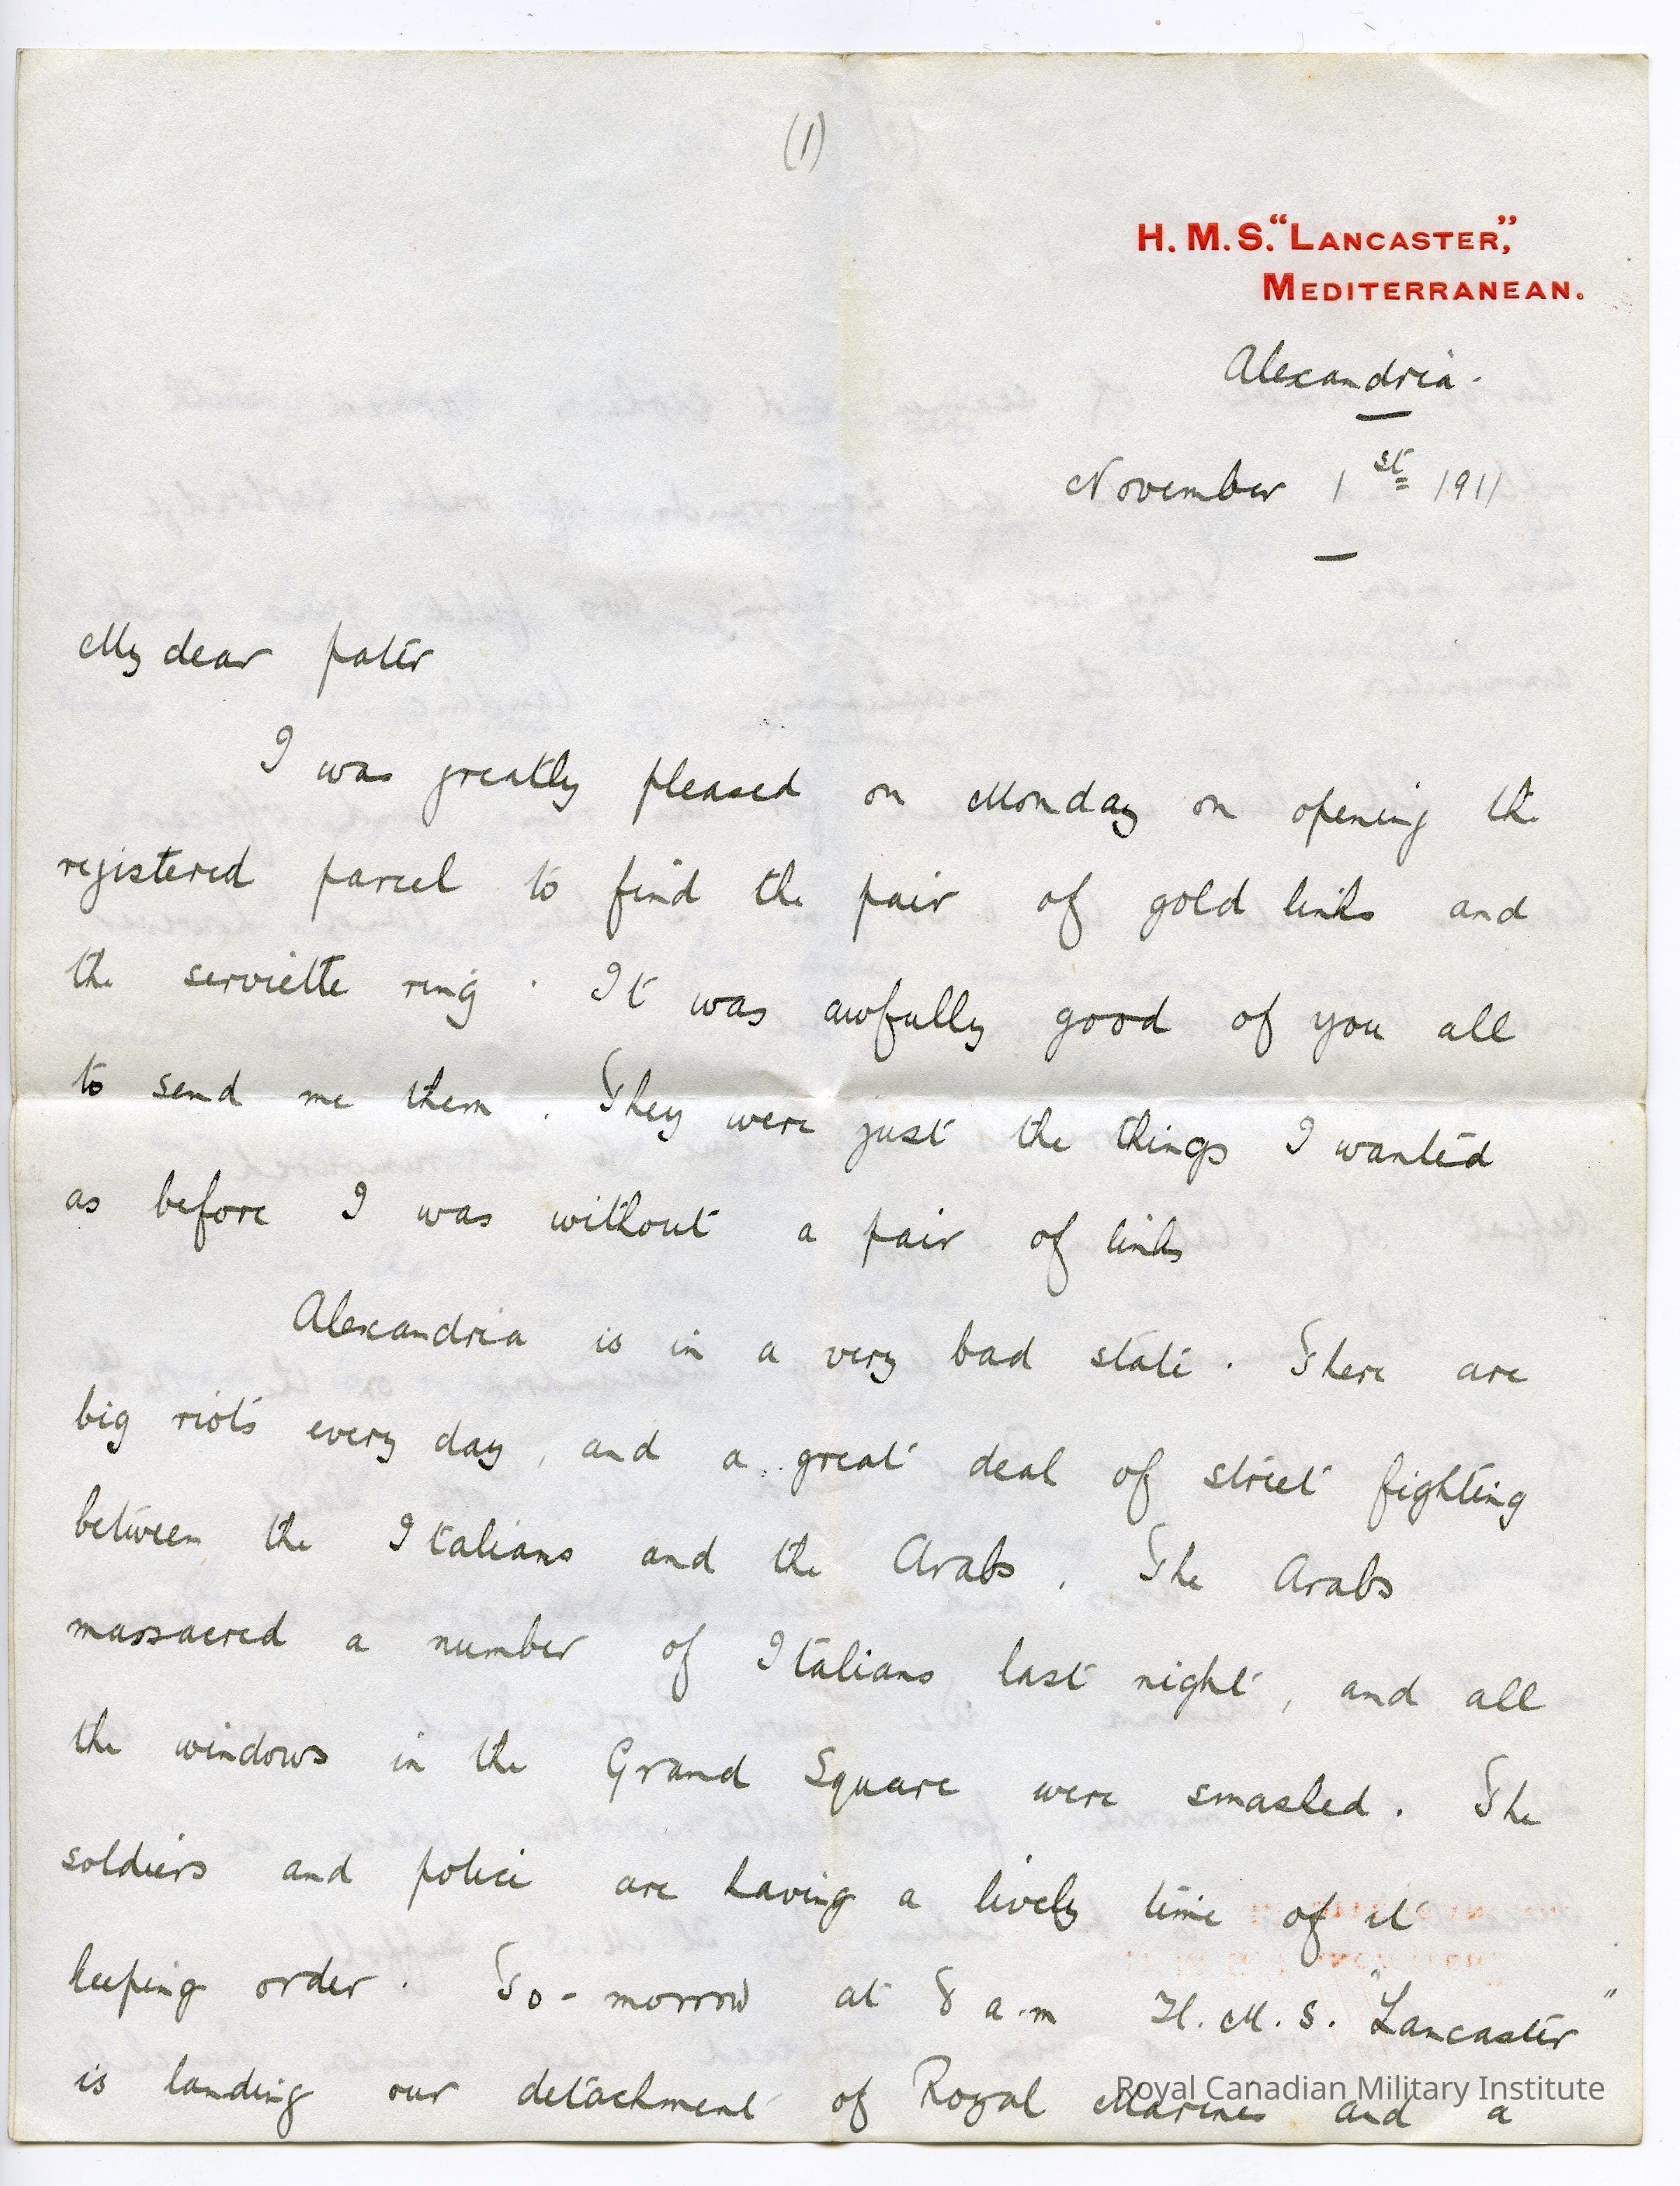 (1)
H. M. S. "LANCASTER",
MEDITERRANEAN.
Alexandria.
November 1st 1911
My dear pater
I was greatly pleased on Monday on opening the
registered parcel to find the pair of gold links and
the serviette ring. It was awfully good of you all
to send me them. They were just the things I wanted
as before I was without a pair of links
Alexandria is in a very bad state. There are
big riots every day, and a great deal of street fighting
between the Italians and the Arabs. The Arabs
massacred a number of Italians last night, and all
the windows in the Grand Square were smashed. The
soldiers and police are having a lively time of it
keeping order. To-morrow at 8 a.m H.M.S. "Lancaster"
is landing our detachment of Royal Marines and a
Royal Canadian Military Institute